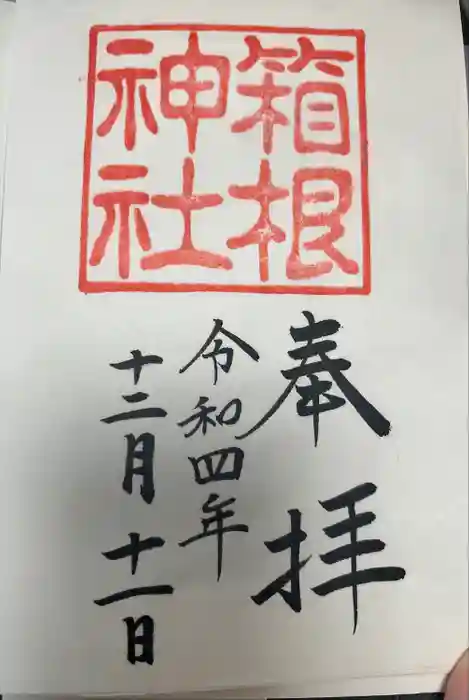 箱根
神社
奉拝
令和四年
十二月十一日